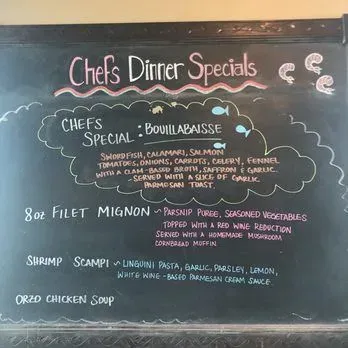 Chefs Dinner Specials
CHEFS
SPECIAL: BOUILLABAISSE
SWORDFISH, CALAMARI, SALMON
TOMATOES, ONIONS, CARROTS, CELERY, FENNEL
WITH A CLAM-BASED BROTH, SAFFRON & GARLIC.
- SERVED WITH A SLICE OF GARLIC
PARMESAN TOAST.
8oz FILET MIGNON ~ PARSNIP PUREE, SEASONED VEGETABLES
TOPPED WITH A RED WINE REDUCTION
SERVED WITH A HOMEMADE MUSHROOM
CORNBREAD MUFFIN
SHRIMP SCAMPI ~ LINGUINI PASTA, GARLIC, PARSLEY, LEMON,
WHITE WINE-BASED PARMESAN CREAM SAUCE.
ORZO CHICKEN SOUP